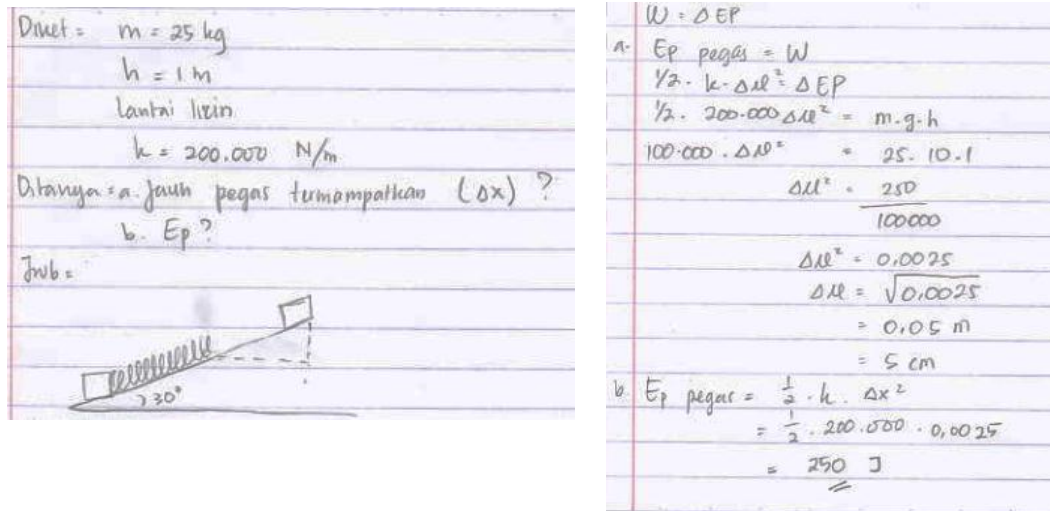 Diket = m = 25 kg
h = 1 m
Lantai licin
k = 200.000 N/m
Ditanya = a. Jauh pegas termampatkan (Δx) ?
b. Ep ?
Jwb =
30°
W = ΔEP
a. Ep pegas = W
1/2 . k . Δx² = ΔEP
1/2 . 200.000 Δx² = m.g.h
100.000 . Δx² = 25 . 10 . 1
Δx² = 250
100000
Δx² = 0,0025
Δx = √0,0025
= 0,05 m
= 5 cm
b. Ep pegas = 1/2 . k . Δx²
= 1/2 . 200.000 . 0,0025
= 250 J